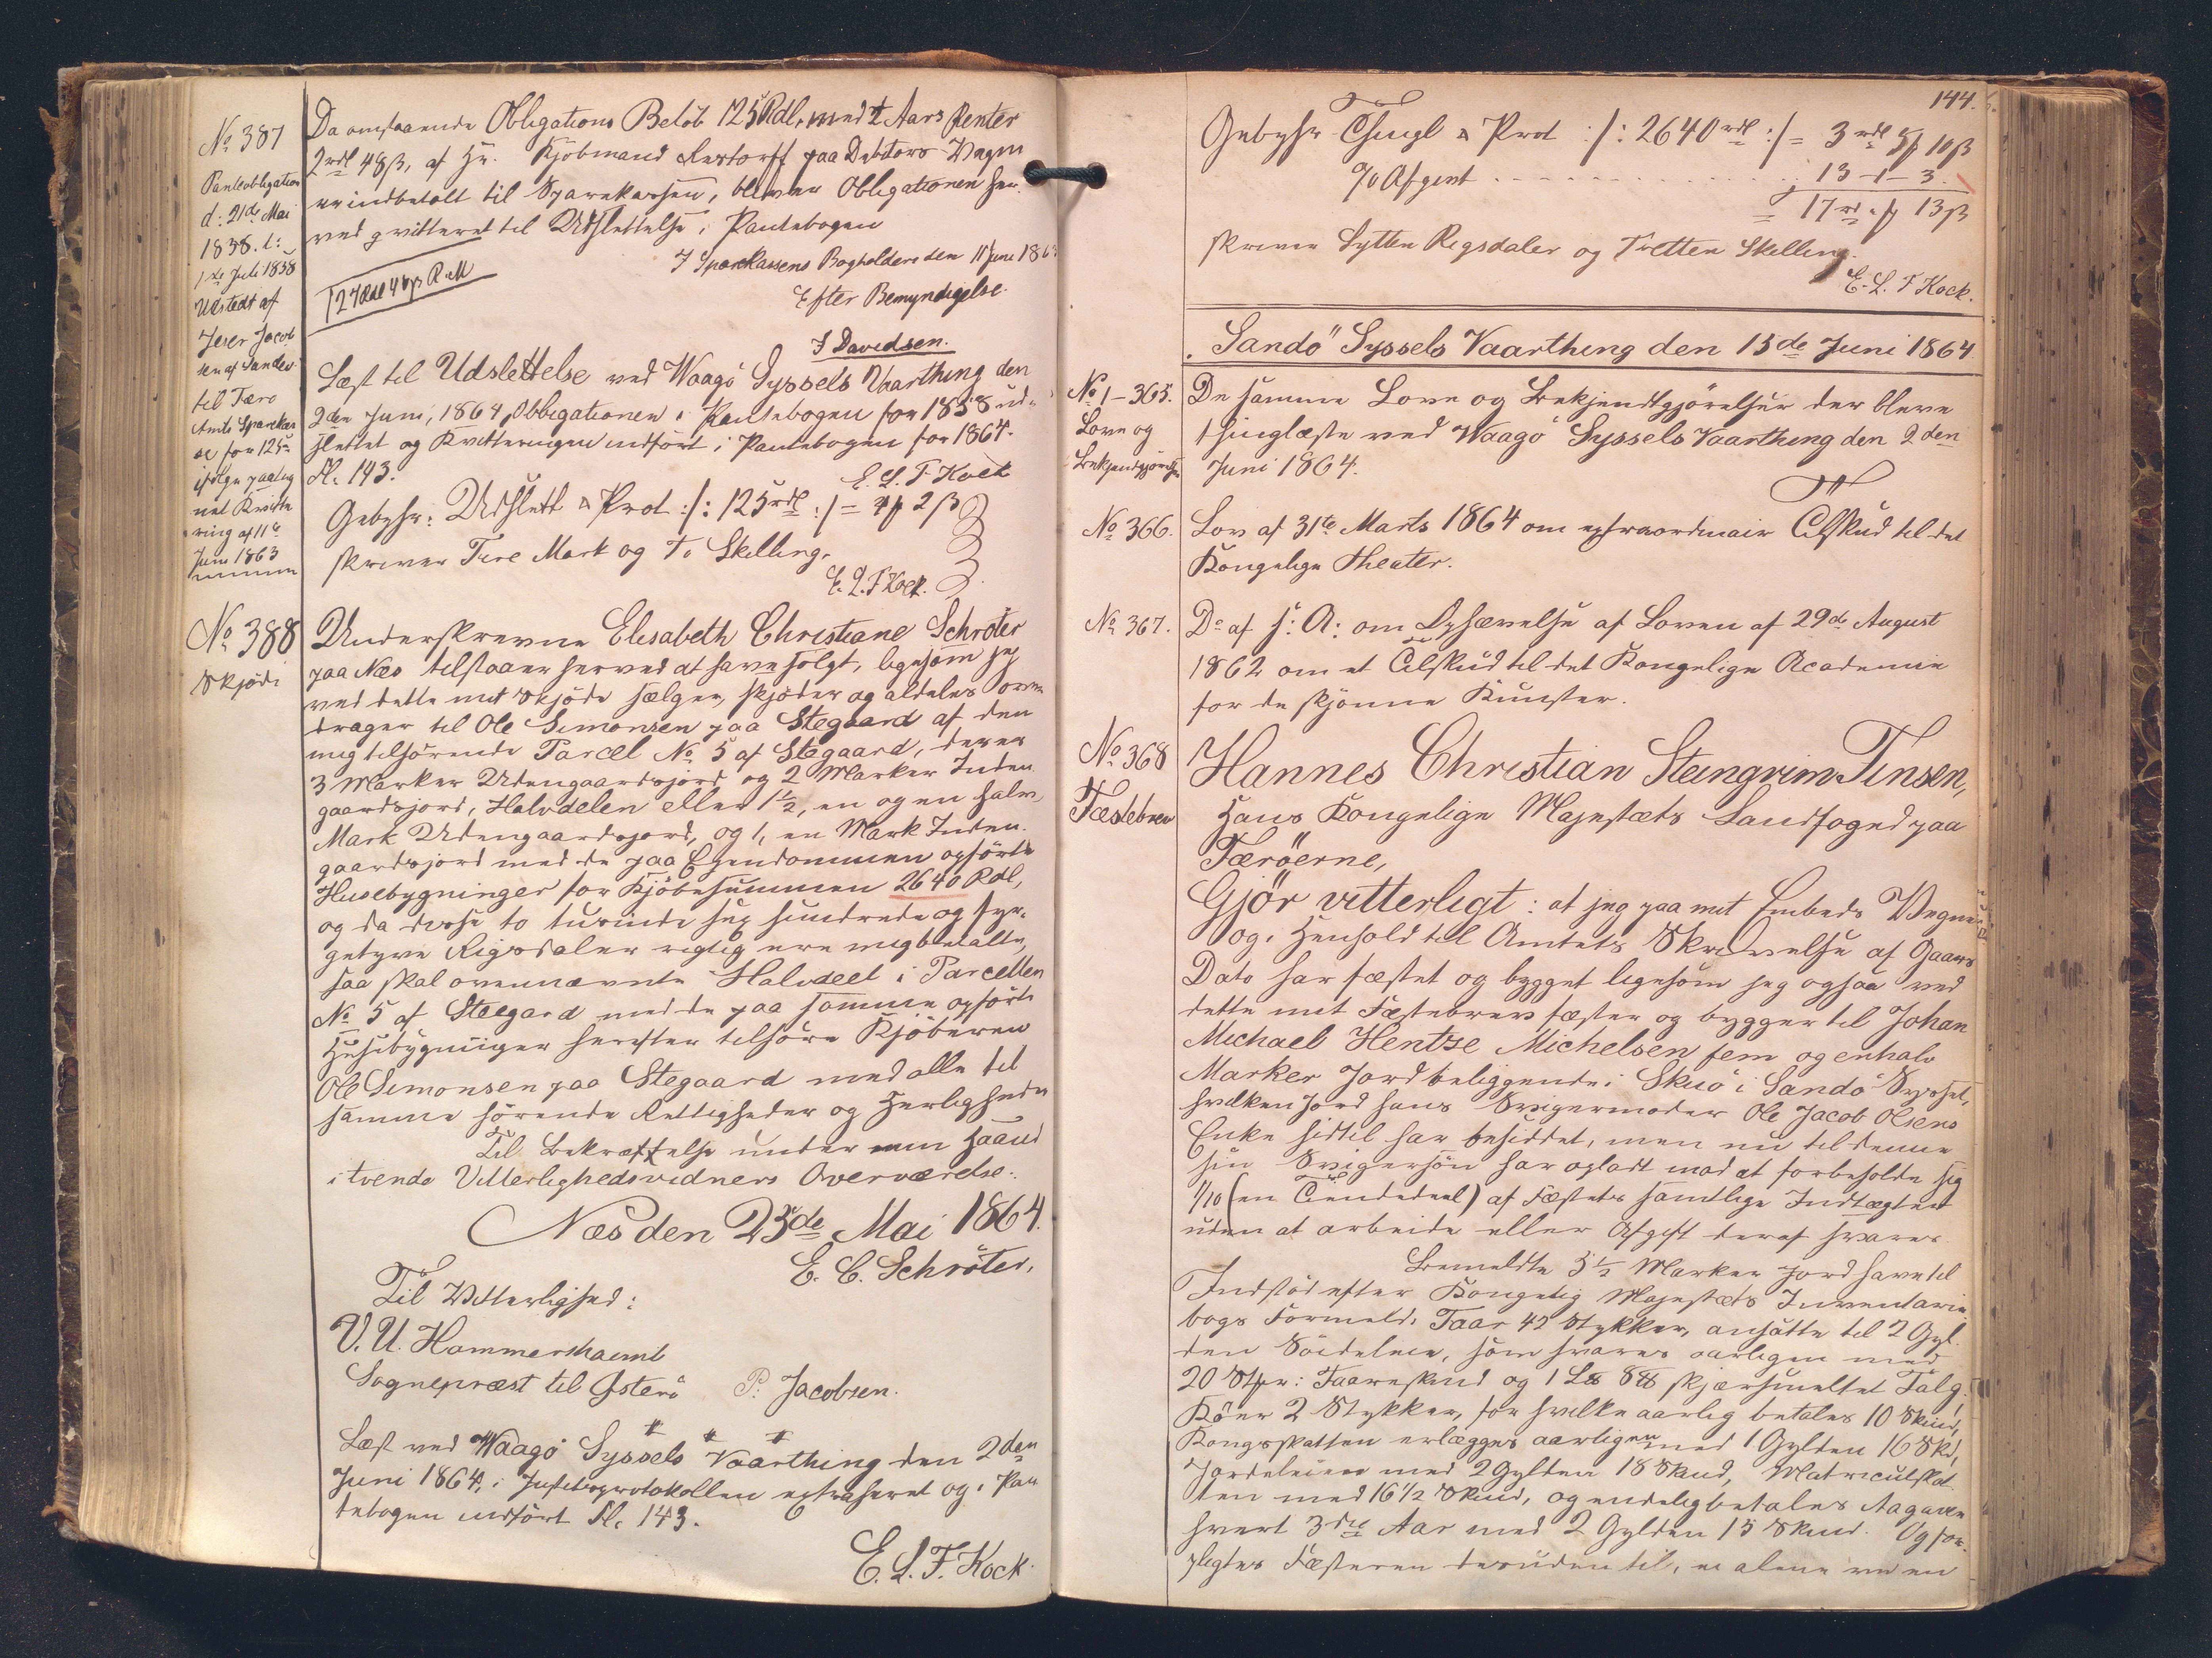 No 387
Panteobligation
d: 21de Mai
1838. l:
1ste Juli 1838
Udstedt af
Jeser Jacob
sen af Sandev.
til Færø
Amts Sparekas
se for 125
ifølge paateg
net Kvitte
ring af 11te
Juni 1863
Da omstaaende Obligations Beløb 125 Rdl. med 1 Aars Renter
2 rdl 48 ß, af Hr. Kjøbmand Restorff paa Debitors Vegne
er indbetalt til Sparekassen, bliver Obligationen her
ved qvitteret til Udslettelse i Pantebogen
I Sparekassens Bogholderi den 11 Juni 1863
Efter Bemyndigelse
J Davidsen.
Læst til Udslettelse ved Waagø Syssels Vaarthing den
2den Juni, 1864, Obligationen i Pantebogen for 1858 ud-
slettet og Kvitteringen indført i Pantebogen for 1864.
Fl. 143.
E. L. F. Kock
Gebyhr: Udslett & Prot :/: 125 rdl :/ = 4 ſ 2 ß
skriver Fire Mark og To Skilling.
E. L. F Kock.
No 388
Skjøde
Underskrevne Elisabeth Christiane Schrøter
paa Næs tilstaaer herved at have solgt, ligesom jeg
ved dette mit Skjøde sælger, skjøder og aldeles over
drager til Ole Simonsen paa Stegaard af den
mig tilhørende Parcel No 5 af Stegaard, deres
3 Marker Udengaardsjord og 2 Marker Inden
gaardsjord, Halvdelen eller 1½, en og en halv,
Mark Udengaardsjord, og 1, en Mark Inden-
gaardsjord med de paa Ejendommen opførte
Husebygninger for Kjøbesummen 2640 Rdl,
og da disse to tusinde sex hundrede og fyr-
getyve Rigsdaler rigtig ere mig betalte,
saa skal ovennævnte Halvdeel i Parcellen
No 5 af Steegard med de paa samme opførte
Husebygninger herefter tilhøre Kjøberen
Ole Simonsen paa Stegaard med alle til
samme hørende Rettigheder og Herligheder
Til Bekræftelse under min Haand
i tvende Vitterlighedsvidners Overværelse.
Næs den 23de Mai 1864.
E. C. Schrøter.
Til Vitterlighed:
V. U. Hammershaimb
Sognepræst til Østerø P: Jacobsen.
Læst ved Waagø Syssels Vaarthing den 2den
Juni 1864, i Justitsprotokollen extraheret og i Pan
tebogen indført Fl. 143.
E. L. F. Kock.
144.
Gebyhr Thingl & Prot :/: 2640 rdl :/ = 3 rdl 5 ſ 10 ß
% Afgivt . . . . . 13 - 1 - 3.
= 17 rd " ſ 13 ß
skriver Sytten Rigsdaler og Tretten Skilling.
E. L. F Kock.
Sandø Syssels Vaarthing den 15de Juni 1864
No 1-365.
Love og
Bekjendtgjørelser
De samme Love og Bekjendtgjørelser der bleve
thinglæste ved Waagø Syssels Vaarthing den 2den
Juni 1864.
No 366.
Lov af 31te Marts 1864 om extraordinair Tilskud til det
Kongelige Theater.
No 367.
Do af s: A: om Ophævelse af Loven af 29de August
1862 om et Tilskud til det Kongelige Academie
for de skjønne Kunster.
No 368
Fæstebrev
Hannes Christian Steingrim Finsen,
Hans Kongelige Majestæts Landfoged paa
Færøerne,
Gjør vitterligt: at jeg paa mit Embeds Vegne
og i Henhold til Amtets Skrivelse af Gaars
Dato har fæstet og bygget ligesom jeg ogsaa ved
dette mit Fæstebrev fæster og bygger til Johan
Michael Hentze Michelsen fem og en halv
Marker Jord beliggende i Skuø i Sandø Syssel,
hvilken Jord hans Svigermoder Ole Jacob Olsens
Enke hidtil har besiddet, men nu til denne
sin Svigersøn har opladt mod at forbeholde sig
1/10 (en Tiendedeel) af Fæstets samtlige Indtægter
uden at arbeide eller Afgift deraf svares
Bemeldte 5½ Marker Jord have til
Indstød efter Kongelig Majestæts Inventarie
bogs Formeld: Faar 42 Stykker, ansatte til 2 Gyl
den Søideleie, som svares aarligen med
20 Stkr: Faareskind og 1 L℔ 8℔ skjærsmeltet Talg.
Køer 2 Stykker, for hvilke aarlig betales 10 Skind,
Kongsskatten erlægges aarligen med 1 Gylden 16 Skd,
Jordeleien med 2 Gylden 18 Skind, Matriculskat
ten med 16½ Skind, og endelig betales Aagaven
hvert 3die Aar med 2 Gylden 15 Skind. Og for-
pligtes Fæsteren desuden til, ei alene